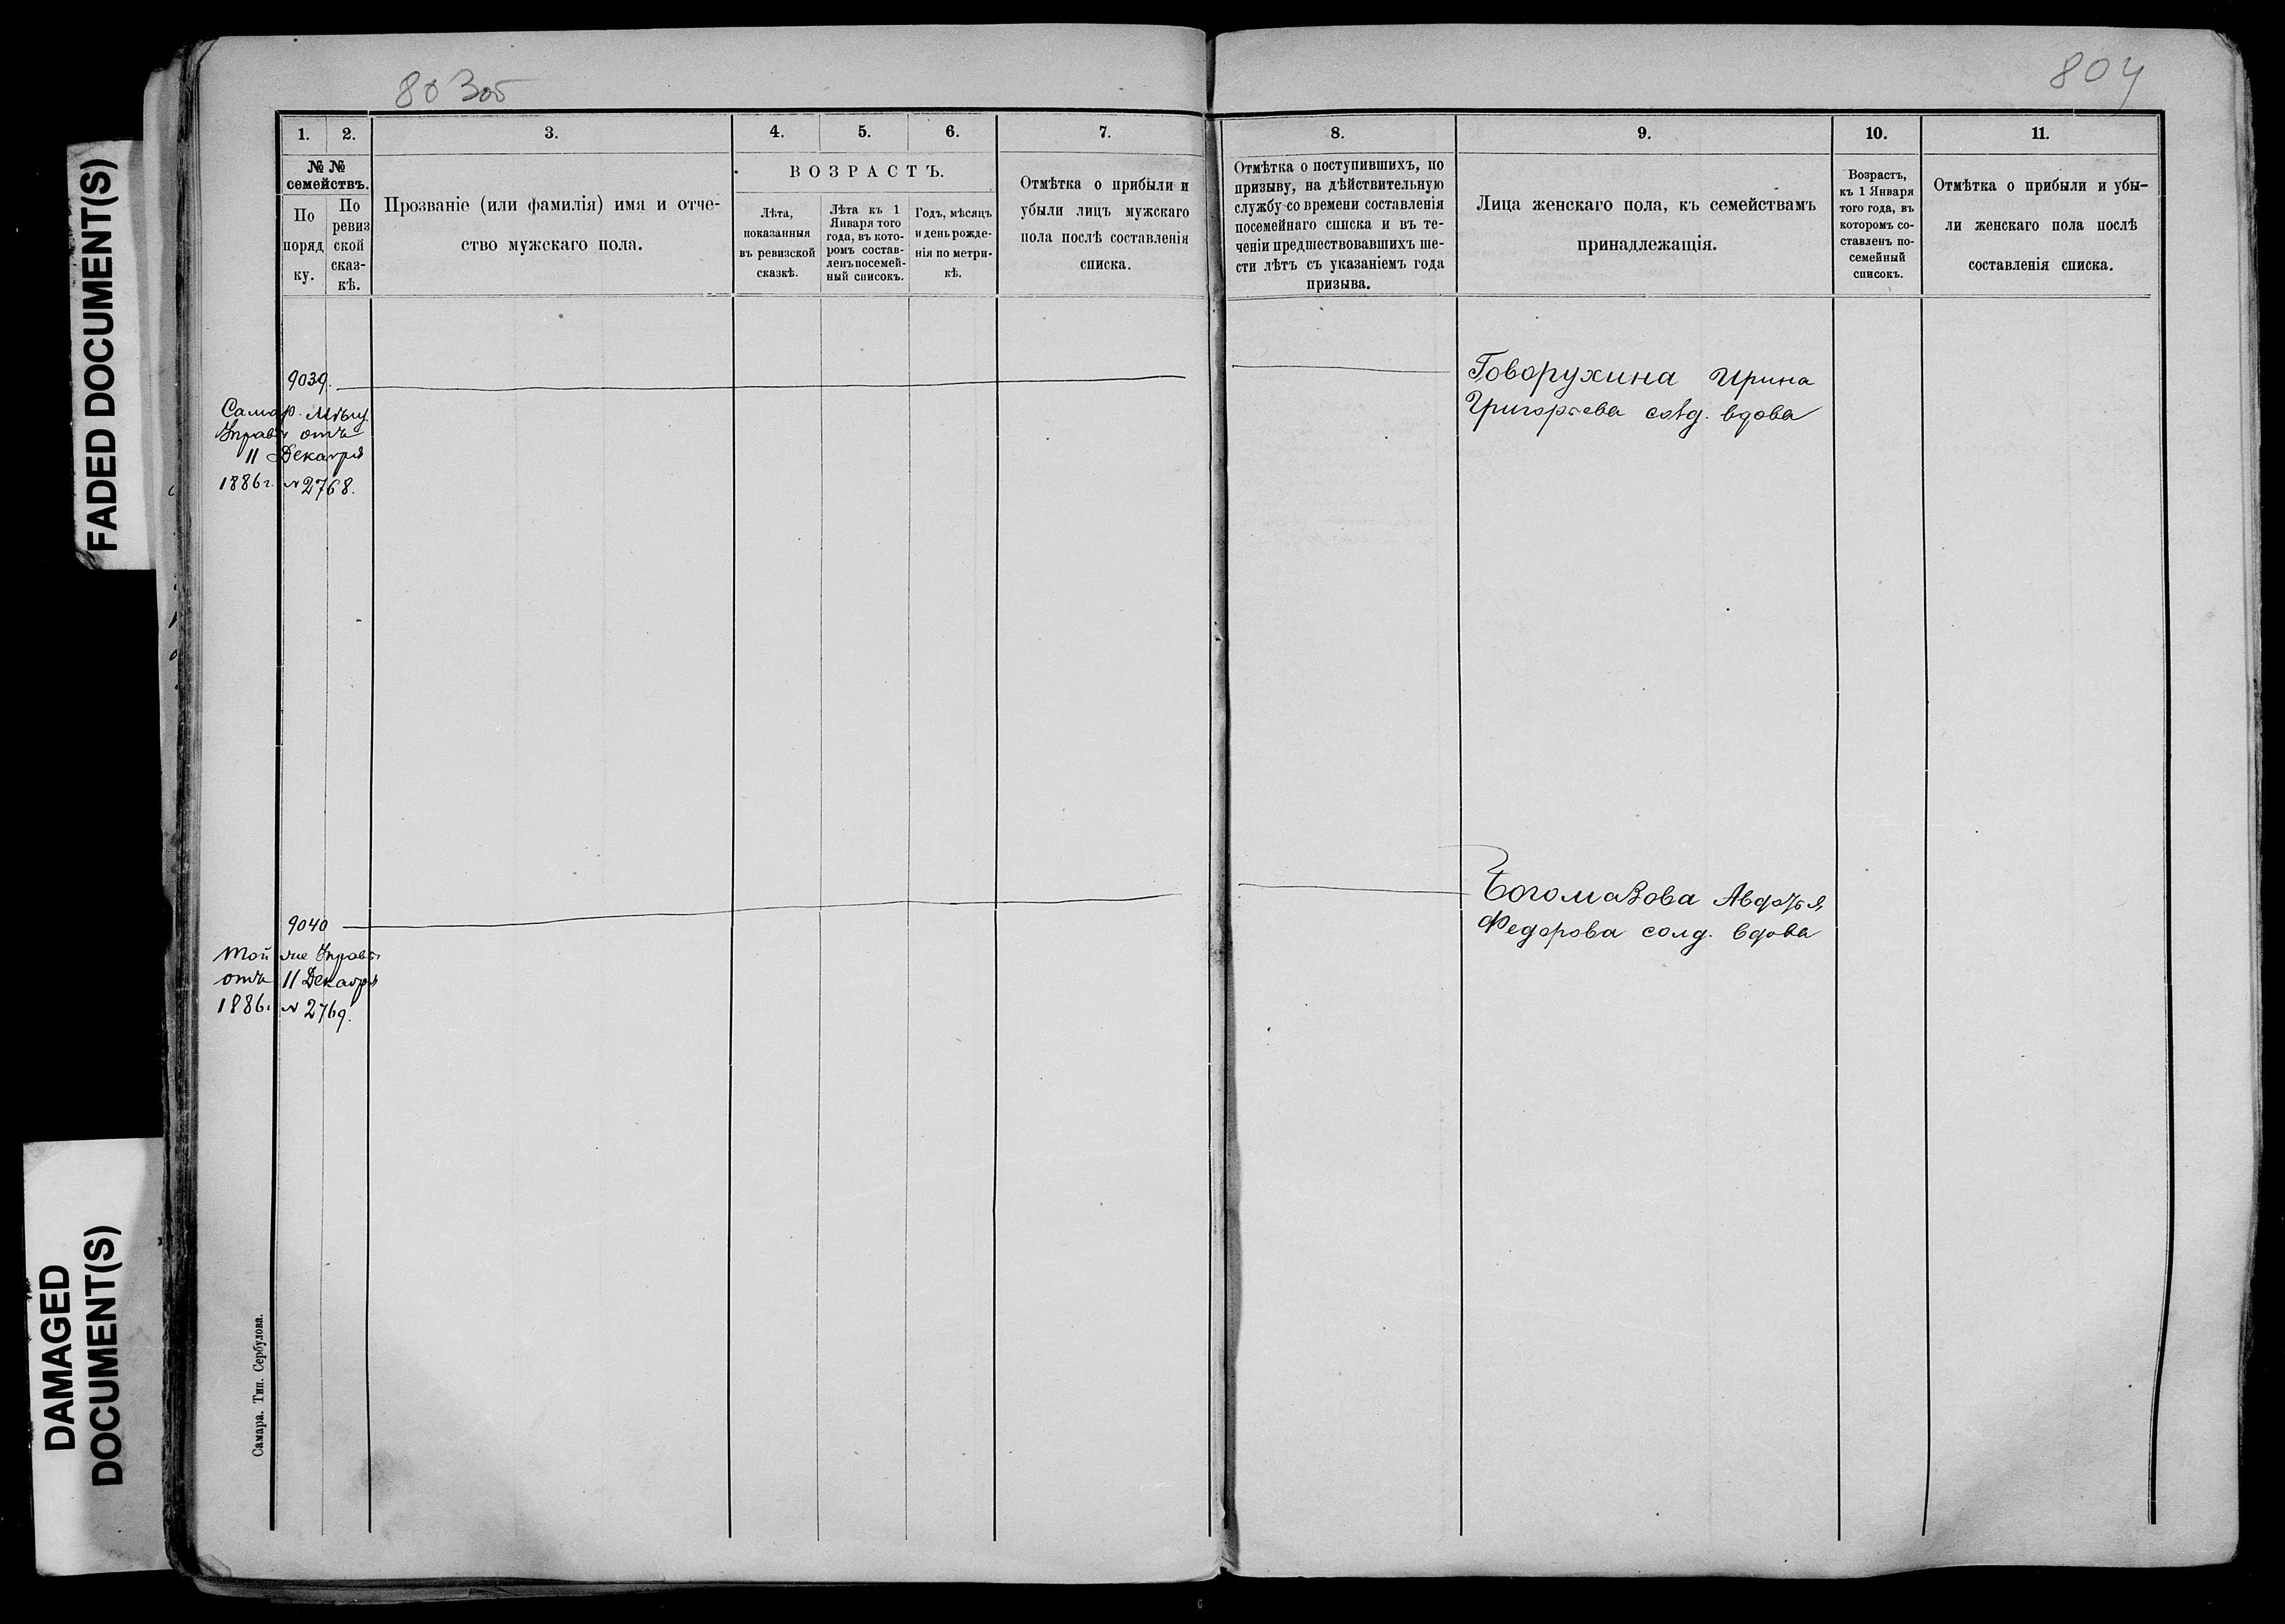 803об
804
FADED DOCUMENT(S)
DAMAGED
DOCUMENT(S)
1.
2.
3.
4.
5.
6.
7.
№ №
семействъ.
По
поряд
ку.
По
ревиз
ской
сказ-
кѣ.
Прозваніе (или фамилія) имя и отче-
ство мужскаго пола.
ВОЗРАСТЪ.
Лѣта,
показанныя
въ ревизской
сказкѣ.
Лѣта къ 1
Января того
года, въ кото-
ромъ состав-
ленъ посемей-
ный списокъ.
Годъ, мѣсяцъ
и день рожде-
нія по метри-
кѣ.
Отмѣтка о прибыли и
убыли лицъ мужскаго
пола послѣ составленія
списка.
8.
9.
10.
11.
Отмѣтка о поступившихъ, по
призыву, на дѣйствительную
службу со времени составленія
посемейнаго списка и въ те-
ченіи предшествовавшихъ ше-
сти лѣтъ съ указаніемъ года
призыва.
Лица женскаго пола, къ семействамъ
принадлежащія.
Возрастъ,
къ 1 Января
того года, въ
которомъ со-
ставленъ по-
семейный
списокъ.
Отмѣтка о прибыли и убы-
ли женскаго пола послѣ
составленія списка.
9039.
Самар. Мѣщ.
Управы отъ
11 Декабря
1886г. № 2768.
Говорухина Ирина
Григорьева солд. вдова
9040
Той же Управы
отъ 11 Декабря
1886г. № 2769.
Богомазова Авдотья
Федорова солд. вдова
Самара. Тип. Сербулова.